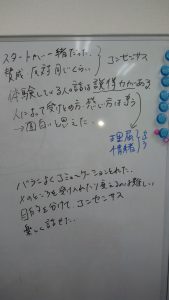 スタートから一緒だった
賛成 反対 同じくらい
コンセンサス
体験している人の話は説得力がある
人によって受けとめ方 想い方はちがう
→面白いと思えた
理屈
情緒
バランスよくコミュニケーションとれた
人のところを受け入れたり変えるのは難しい
自分を分けて、コンセンサス
楽しく話せた